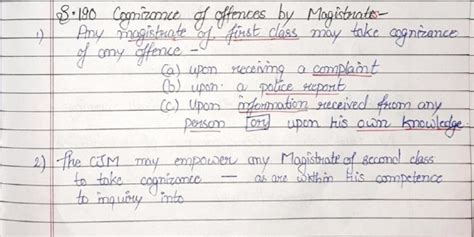 S.190 Cognizance of offences by Magistrate-
1) Any magistrate of first class may take cognizance
of any offence -
(a) upon receiving a complaint
(b) upon a police report
(c) Upon information received from any
person [or] upon his own knowledge.
2) The CJM may empower any Magistrate of second class
to take cognizance — as are within his competence
to inquiry into